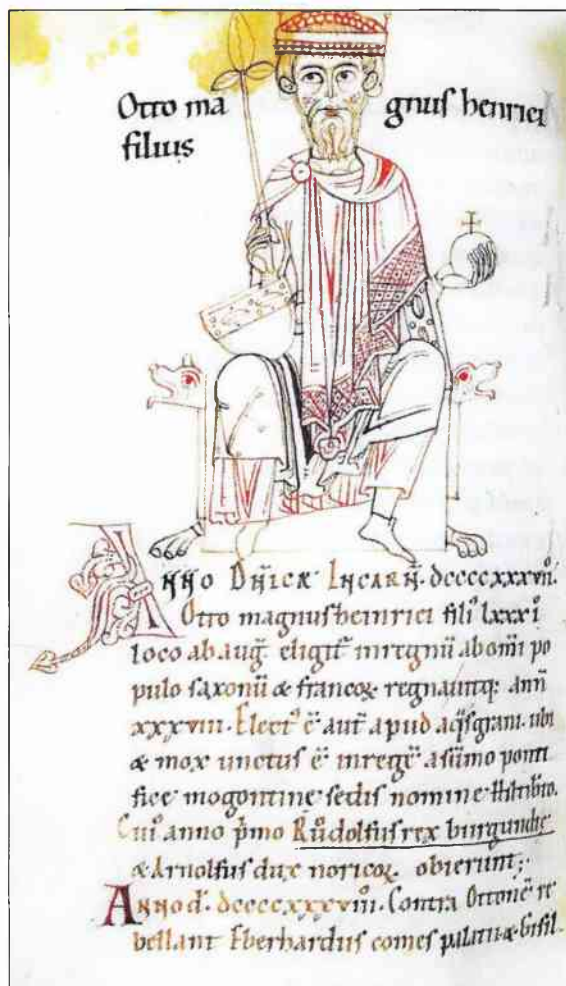 Otto magnus henrici
filius
Anno Dñicæ Incarñ. dccccxxxvii.
Otto magnus heinrici filiꝰ lxxxiꝰ
loco ab aug̃. eligit᷑ in regnũ ab om̃i po
pulo saxonũ & francoꝝ regnauitq; anñ
xxxviii. Electꝰ ẽ aut̃ apud aq̃sgrani. ubi
& mox unctus ẽ in regẽ a sũmo ponti
fice mogontine sedis nomine
Cuiꝰ anno p̃mo Růdolfus rex burgundie
& Arnolfus dux noricoꝝ. obierunt;
Anno d̃. dccccxxxviii. Contra Ottonẽ re
bellant Eberhardus comes palatii & Gisil